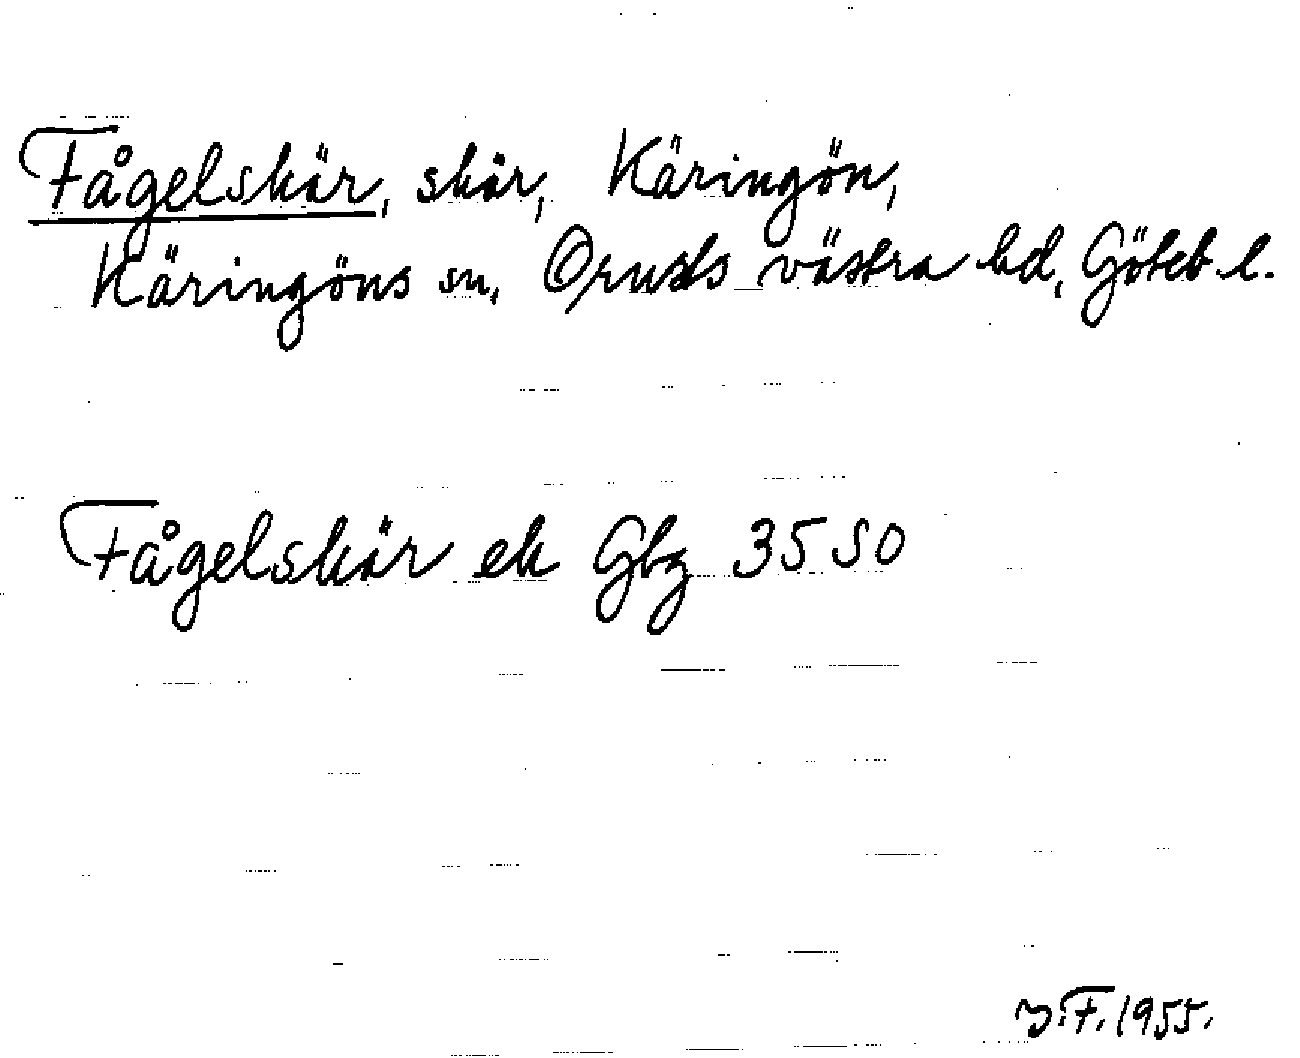 Fågelskär, skär, Käringön,
Käringöns sn, Orusts västra hd, Göteb. l.
Fågelskär ek Gbg 35 SO
F. 1955.